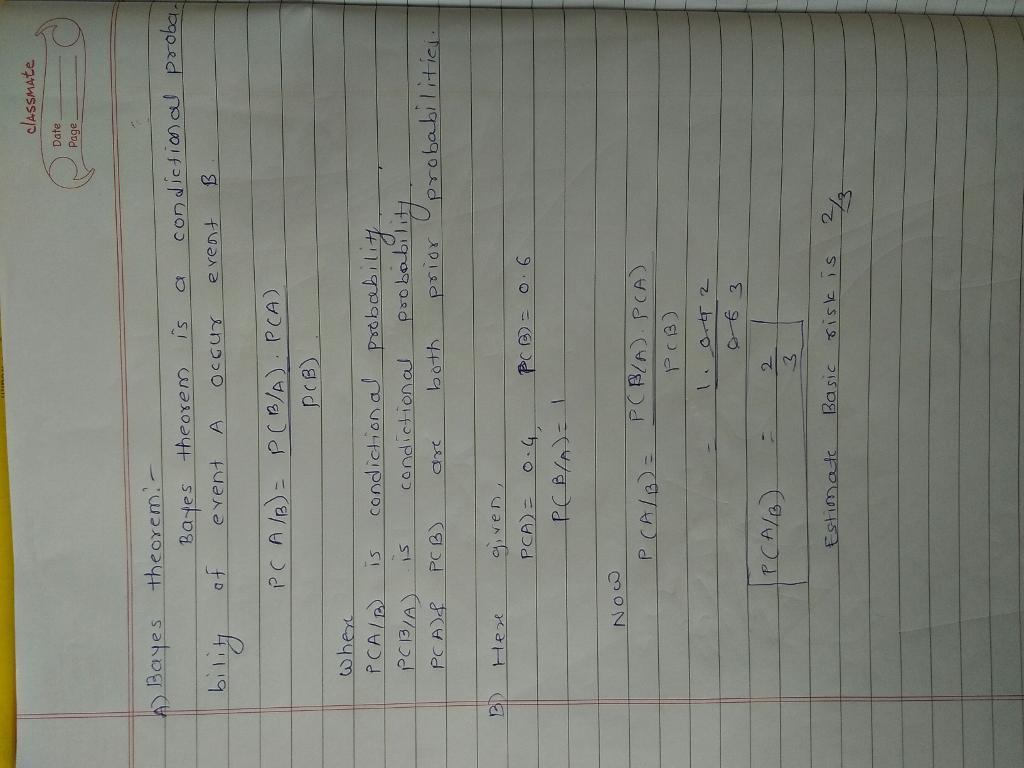 classmate
Date
Page
A) Bayes theorem:-
Bayes theorem is a condictional proba-
bility of event A occur event B.
P(A/B) = P(B/A). P(A)
P(B).
When
P(A/B) is condictional probability,
P(B/A) is condictional probability.
P(A)& P(B) are both prior probabilities.
B) Here given,
P(A) = 0.4, P(B) = 0.6
P(B/A) = 1
Now
P(A/B) = P(B/A). P(A)
P(B)
= 1. 0.4 2
0.6 3
P(A/B) = 2
3
Estimate Basic risk is 2/3